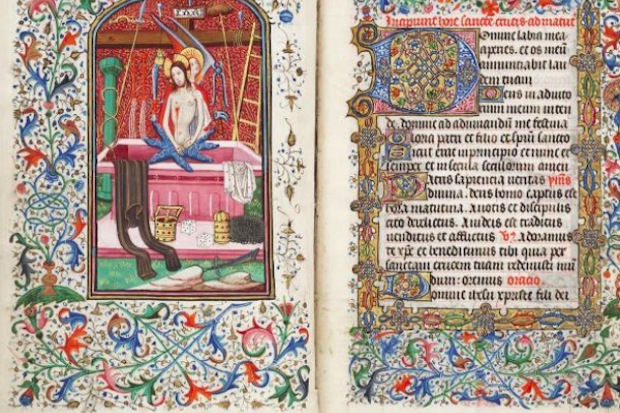 INRI
Incipiunt hore sancte crucis ad matut
Domine labia mea
aperies. et os meũ
annunciabit lau
dem tuam
Deus in adiuto
rium meum inten
de. domine ad adiuuandũ me festina
Gloria patri et filio et spũi sancto
Sicut erat in principio et nunc et
semper et in secula seculorum amen
Patris sapientia veritas
diuina. deus homo captus est
hora matutina. A notis et discipulis
cito derelictus. A iudeis est traditus
venditus et afflictus V̷. Adoramus
te xp̃e et benedicimus tibi quia per
sanctam crucem tuam redemisti mũ
dum: oremus Oracio.
Domine ihesu xp̃iste fili dei